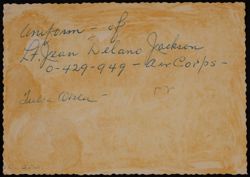 Uniform - of
Lt. Jean Delano Jackson
0-429-949 - Air Corps -
Tulsa Okla -